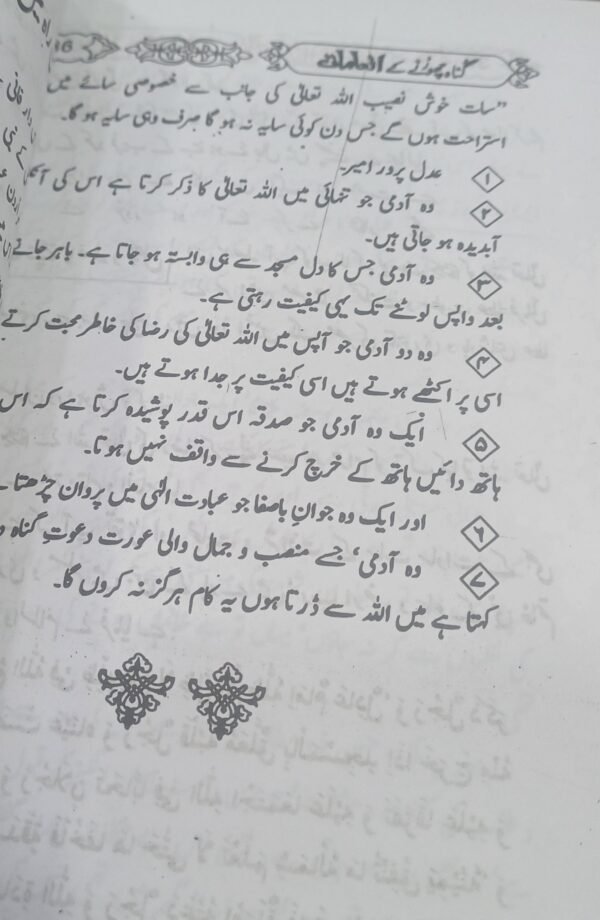 گناہ چھوڑنے کے انعامات
"سات خوش نصیب اللہ تعالیٰ کی جانب سے خصوصی سائے میں
استراحت ہوں گے جس دن کوئی سایہ نہ ہو گا صرف وہی سایہ ہو گا۔
۱ عدل پرور امیر۔
۲ وہ آدمی جو تنہائی میں اللہ تعالیٰ کا ذکر کرتا ہے اس کی
آبدیدہ ہو جاتی ہیں۔
۳ وہ آدمی جس کا دل مسجد سے ہی وابستہ ہو جاتا ہے۔ باہر جانے
بعد واپس لوٹنے تک یہی کیفیت رہتی ہے۔
۴ وہ دو آدمی جو آپس میں اللہ تعالیٰ کی رضا کی خاطر محبت کرتے
اسی پر اکٹھے ہوتے ہیں اسی کیفیت پر جدا ہوتے ہیں۔
۵ ایک وہ آدمی جو صدقہ اس قدر پوشیدہ کرتا ہے کہ اس
ہاتھ دائیں ہاتھ کے خرچ کرنے سے واقف نہیں ہوتا۔
۶ اور ایک وہ جوانِ باصفا جو عبادت الٰہی میں پروان چڑھتا
۷ وہ آدمی' جسے منصب و جمال والی عورت دعوتِ گناہ
کہتا ہے میں اللہ سے ڈرتا ہوں یہ کام ہرگز نہ کروں گا۔